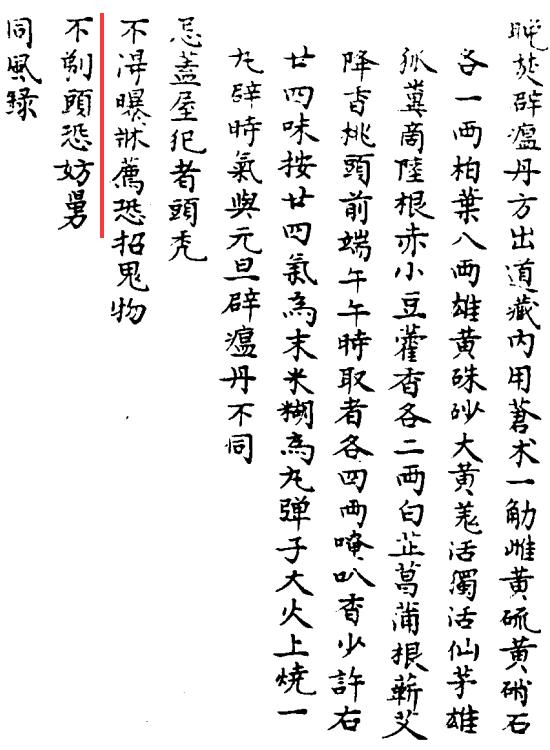 晚焚辟瘟丹方出道藏内用蒼术一觔雌黄硫黄硝石
各一两柏葉八两雄黄硃砂大黄羗活獨活仙茅雄
狐糞啇陸根赤小豆藿香各二两白芷菖蒲根蘄艾
降香桃頭前端午午時取者各四两唵叭香少許右
廿四味按廿四氣為末米糊為丸弹子大火上燒一
丸辟時氣與元旦辟瘟丹不同
忌蓋屋犯者頭禿
不淂曝牀薦恐招鬼物
不剃頭恐妨舅
同風録